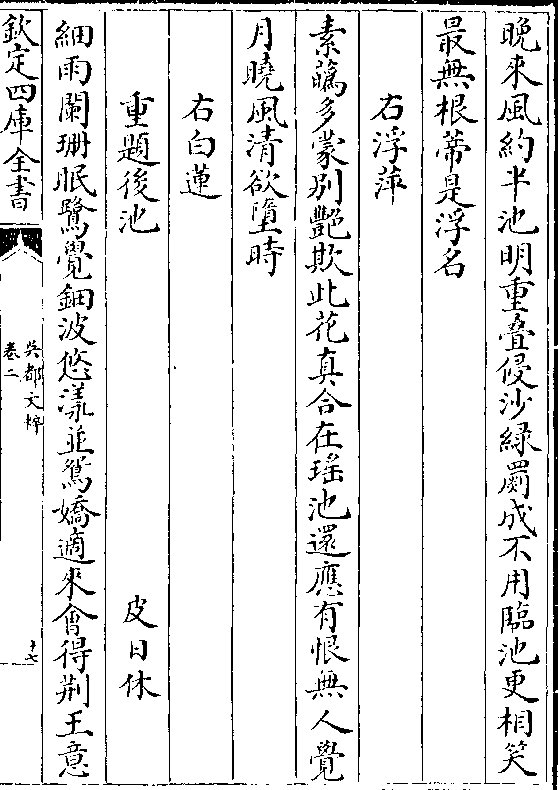 晚來風約半池明重疊侵沙綠罽成不用臨池更相笑
最無根蔕是浮名
右浮萍
素蘤多蒙别艷欺此花真合在瑶池還應有恨無人覺
月曉風清欲墮時
右白蓮
重題後池 皮日休
細雨闌珊眠鷺覺鈿波悠漾並鴛嬌適來會得荆王意
欽定四庫全書
吳都文粹
卷二
十七